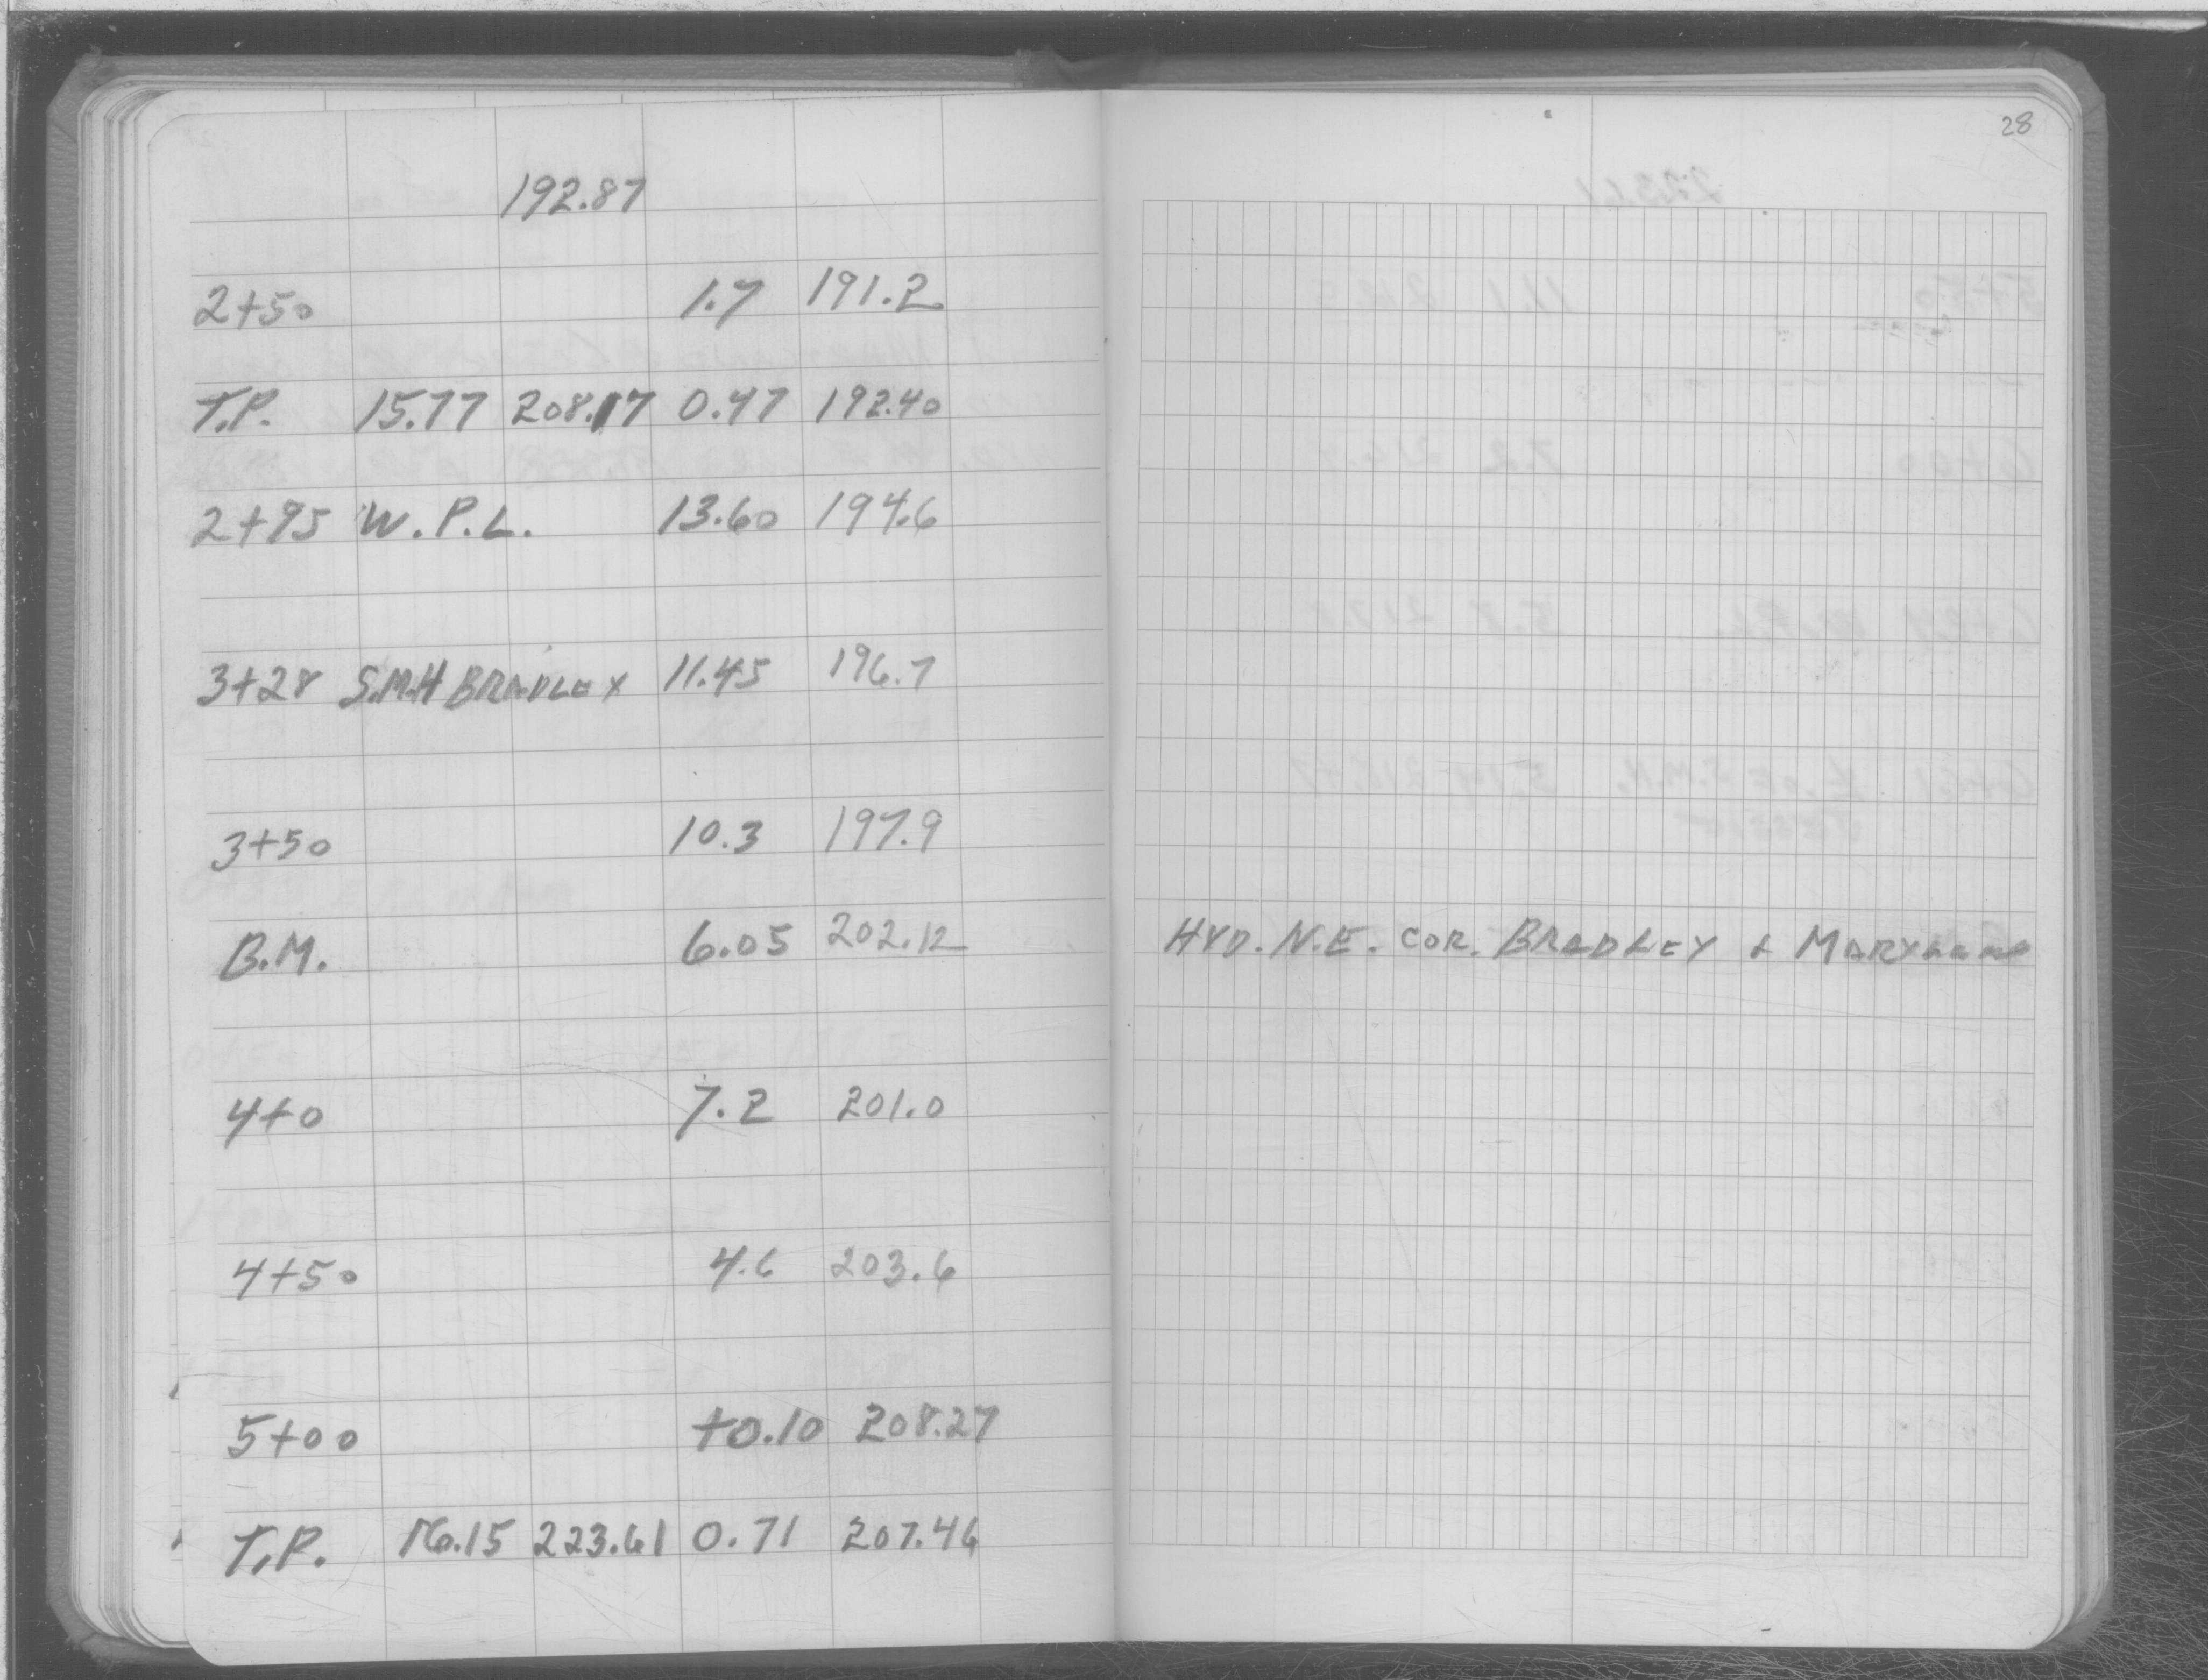 28
192.87
2+50 1.7 191.2
T.P. 15.77 208.17 0.47 192.40
2+95 W.P.L. 13.60 194.6
3+28 S.M.H BRADLEY 11.45 196.7
3+50 10.3 197.9
B.M. 6.05 202.12 HYD. N.E. COR. BRADLEY & MARYLAND
4+0 7.2 201.0
4+50 4.6 203.6
5+00 +0.10 208.27
T.P. 16.15 223.61 0.71 207.46